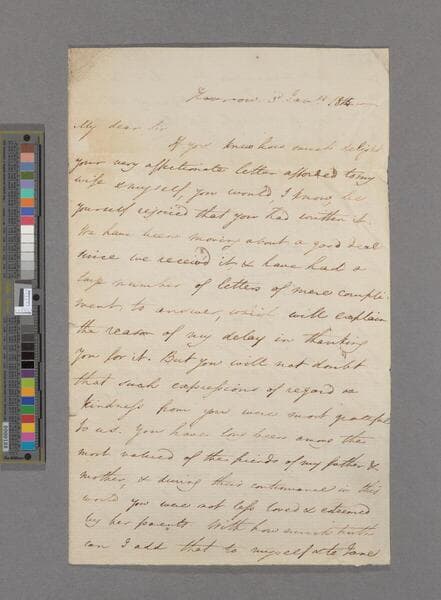 Harrow 3d Jany
My dear Sir
If you knew how much delight
your very affectionate letter afforded to my
wife & myself, you would, I know, be
yourself rejoiced that you had written it.
We have been moving about a good deal
since we received it, & have had a
large number of letters of mere compli-
ment to answer, which will explain
the reason of my delay in thanking
you for it. But you will not doubt
that such expressions of regard &
kindness from you were most grateful
to us. You have long been among the
most valued of the friends of my father &
mother, & during their continuance in this
world you were not less loved & esteemed
by her parents. With how much truth
can I add that to myself & to Jane